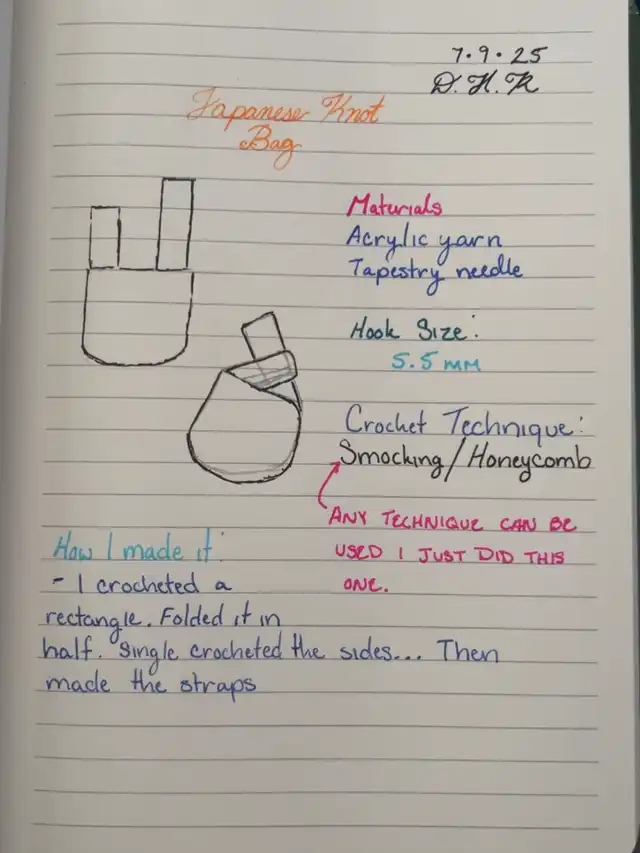 7.9.25
D. H. R
Japanese Knot
Bag
Materials
Acrylic yarn
Tapestry needle
Hook Size:
5.5 mm
Crochet Technique:
Smocking/Honeycomb
ANY TECHNIQUE CAN BE
USED I JUST DID THIS
ONE.
How I made it:
- I crocheted a
rectangle. Folded it in
half. Single crocheted the sides... Then
made the straps